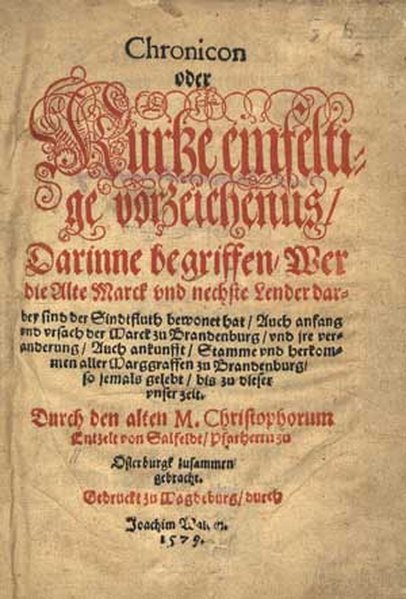 Chronicon
oder
Kurtze einfelti-
ge vorzeichenus/
Darinne begriffen/ Wer
die Alte Marck vnd nechste Lender dar-
bey sind der Sindtfluth bewonet hat/ Auch anfang
vnd vrsach der Marck zu Brandenburg/ vnd jre ver-
anderung/ Auch ankunfft/ Stamme vnd herkom-
men aller Marggraffen zu Brandenburg/
so jemals gelebt/ bis zu dieser
vnser zeit.
Durch den alten M. Christophorum
Entzelt von Salfeldt/ Pfarherrn zu
Osterburgk zusammen
gebracht.
Gedruckt zu Magdeburg/ durch
Joachim
1579.